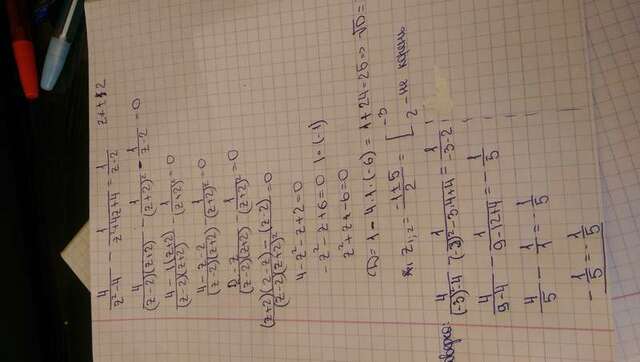 4/(z²-4) - 1/(z²+4z+4) = 1/(z-2)   z≠±2
4/((z-2)(z+2)) - 1/(z+2)² - 1/(z-2) = 0
(4-1(z+2))/((z-2)(z+2)) - 1/(z+2)² = 0
(4-z-2)/((z-2)(z+2)) - 1/(z+2)² = 0
(2-z)/((z-2)(z+2)) - 1/(z+2)² = 0
((z+2)(2-z)-(z-2))/((z-2)(z+2)²) = 0
4-z²-z+2=0
-z²-z+6=0 |·(-1)
z²+z-6=0
D=1-4·1·(-6)=1+24=25=> √D=
z₁,₂ = (-1±5)/2 = [ -3
2 - не корень
4/((-3)²-4) - 1/((-3)²-3·4+4) = 1/(-3-2)
4/(9-4) - 1/(9-12+4) = -1/5
4/5 - 1/1 = -1/5
-1/5 = -1/5